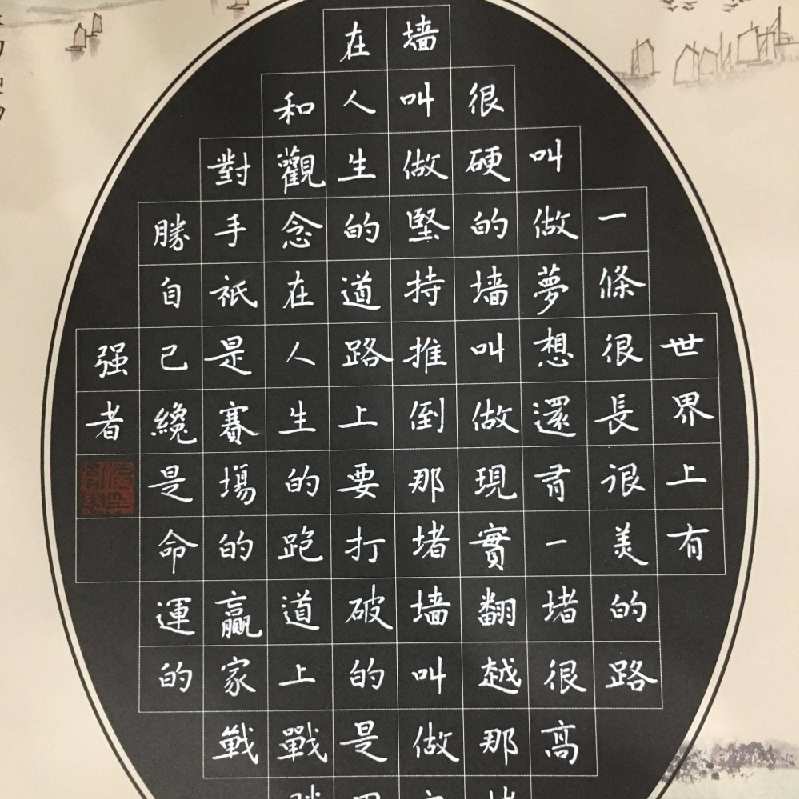 世界上有
一條很長很美的路
叫做夢想還有一堵很高
很硬的墙叫做現實翻越那堵
墙叫做堅持推倒那堵墙叫做
在人生的道路上要打破的是
和觀念在人生的跑道上戰勝
對手祇是賽場的贏家戰
勝自己纔是命運的
强者